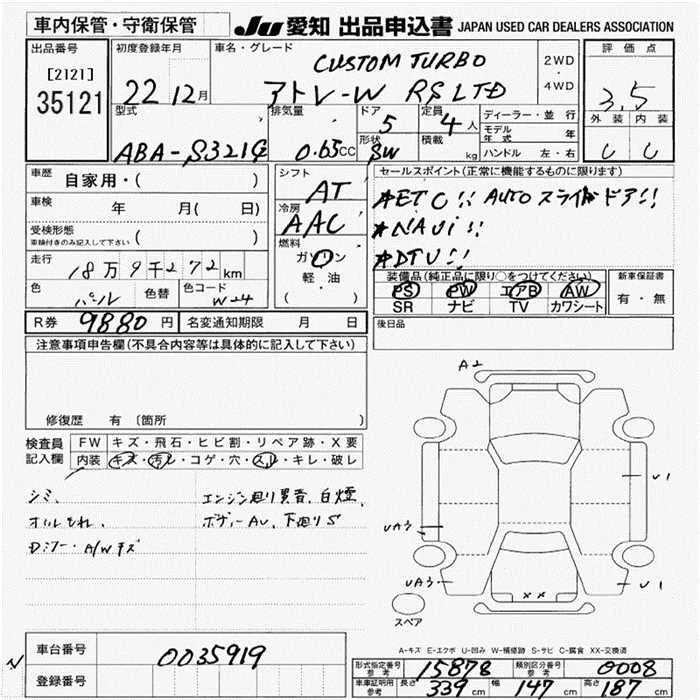 車内保管・守衛保管 JU 愛知 出品申込書 JAPAN USED CAR DEALERS ASSOCIATION
出品番号 初度登録年月 車名・グレード 評価点
[2121] CUSTOM TURBO 2WD
35121 22 12月 アトレ-W RS LTD 4WD 3.5
型式 排気量 ドア 定員 ディーラー・並行 外装 内装
5 4人 モデル年式 年
ABA-S321G 0.65CC 形状 SW 積載 kg ハンドル 左・右 C C
車歴 自家用・( ) シフト AT セールスポイント(正常に機能するものに限ります)
車検 年 月( 日) 冷房 AAC ★ETC!! AUTOスライドドア!!
受検形態 ( ) ★NAVi!!
車検付きのみ記入して下さい 燃料 ガソリン ★DTV!!
走行 18万9千272km 軽・油 装備品(純正品に限り○をつけてください) 新車保証書
色 パール 色替 色コード W24 ( ) PS PW エアB AW 有・無
SR ナビ TV カワシート
R券 9880円 名変通知期限 月 日 後日品
注意事項申告欄(不具合内容等は具体的に記入して下さい)
修復歴 有 〔箇所 〕
検査員 FW キズ・飛石・ヒビ割・リペア跡・X要
記入欄 内装 キズ・汚レ・コゲ・穴・スレ・キレ・破レ
シミ、 エンジン廻り異音、白煙
オイルもれ、 ボディーAU、下廻りS
A2
U1
UA3
UA3
U1
XX
スペア
A-キズ E-エクボ U-凹み W-補修跡 S-サビ C-腐食 XX-交換済
車台番号 0035919
登録番号
形式指定番号 参考 15878 類別区分番号 参考 0008
車車証明用 参考 長さ 339cm 幅 147cm 高さ 187cm